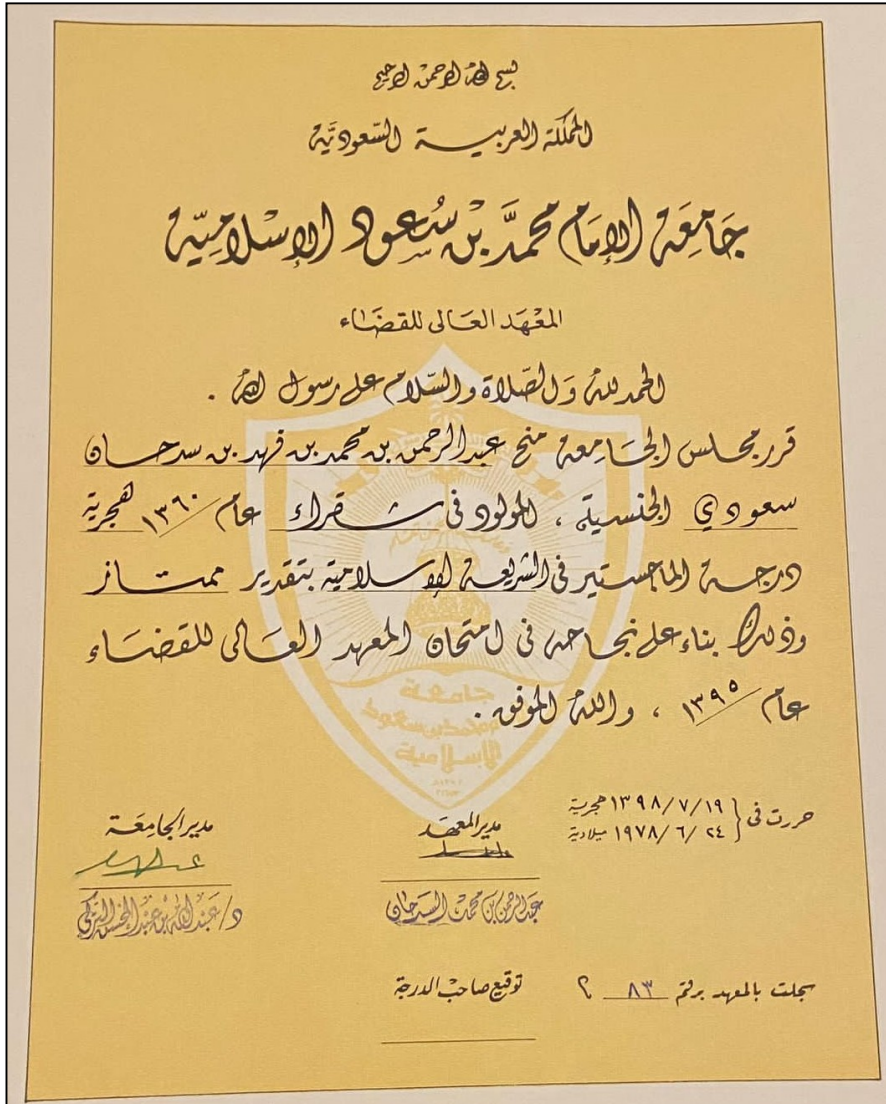 بسم الله الرحمن الرحيم
المملكة العربية السعودية
جامعة الإمام محمد بن سعود الإسلامية
المعهد العالى للقضاء
الحمد لله والصلاة والسلام على رسول الله .
قرر مجلس الجامعة منح عبد الرحمن بن محمد بن فهد بن سدحان
سعودي الجنسية ، المولود فى شقراء عام ١٣٦٠ هجرية
درجة الماجستير فى الشريعة الإسلامية بتقدير ممتاز
وذلك بناء على نجاحه فى امتحان المعهد العالى للقضاء
عام ١٣٩٥ ، والله الموفق .
حررت فى { ١٣٩٨/٧/١٩ هجرية
١٩٧٨/٦/٢٤ ميلادية
مدير المعهد
عبدالرحمن بن محمد السدحان
مدير الجامعة
د/عبدالله بن عبدالمحسن التركي
سجلت بالمعهد برقم ٨٣ م
توقيع صاحب الدرجة
جامعة